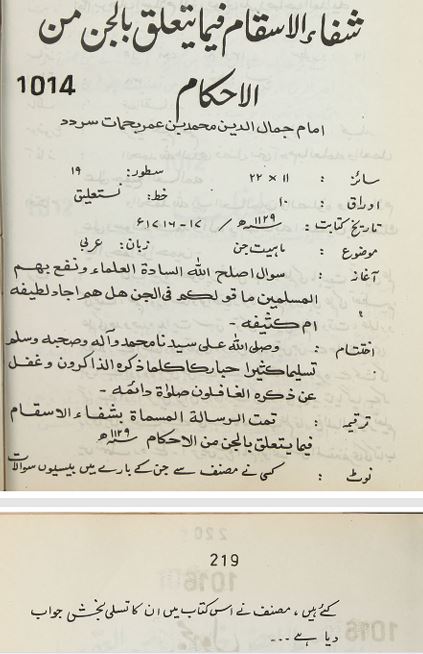 شفاء الاسقام فیما یتعلق بالجن من
1014
الاحکام
امام جمال الدین محمد بن عمر بحمات سردد
سائز : ۱۱ × ۲۲ سطور: ۱۹
اوراق : ۱۰ خط: نستعلیق
تاریخ کتابت : ۱۱۲۹ھ / ۱۷-۱۷۱۶ء
موضوع : ماہیت جن زبان: عربی
آغاز : سوال اصلح اللہ السادۃ العلماء ونفع بہم
المسلمین ما قولکم فی الجن هل هم اجاد لطیفہ
ام کثیفہ -
اختتام : وصلی اللہ علی سیدنا محمد وآلہ وصحبہ وسلم
تسلیما کثیرا مبارکا کلما ذکرہ الذاکرون وغفل
عن ذکرہ الغافلون صلاۃ دائمہ -
ترقیمہ : تمت الرسالة المسماة بشفاء الاسقام
فیما یتعلق بالجن من الاحکام ۱۱۲۹ھ
نوٹ : کسی نے مصنف سے جن کے بارے میں بیسیوں سوالات
219
کئے ہیں، مصنف نے اس کتاب میں ان کا تسلی بخش جواب
دیا ہے ...